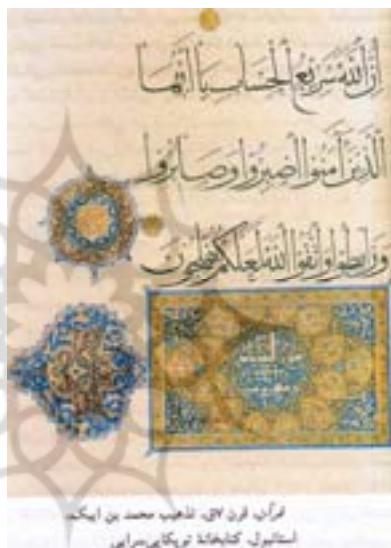 إن الله سريع الحساب يا أيها
الذين آمنوا اصبروا وصابروا
ورابطوا واتقوا الله لعلكم تفلحون
قرآن، قرن تذهیب محمد بن ایبک،
استانبول، کتابخانهٔ توپکاپی‌سرایی